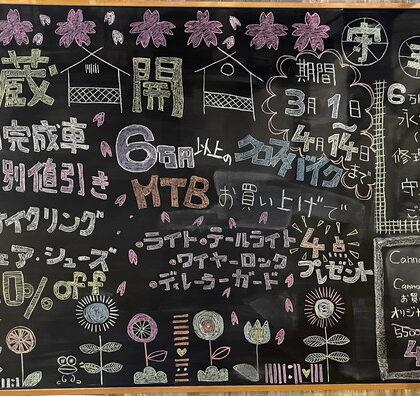 蔵開
期間
3月1日
〜
4月14日まで
完成車
別値引き
6万円以上のクロスバイク
MTBお買い上げで
サイクリング
ウェア・シューズ
0% off
・ライト・テールライト
・ワイヤーロック
・ディレーラーガード
4点
プレゼント
宇
6
永
修
中
Canno
Canno
お
オリジ